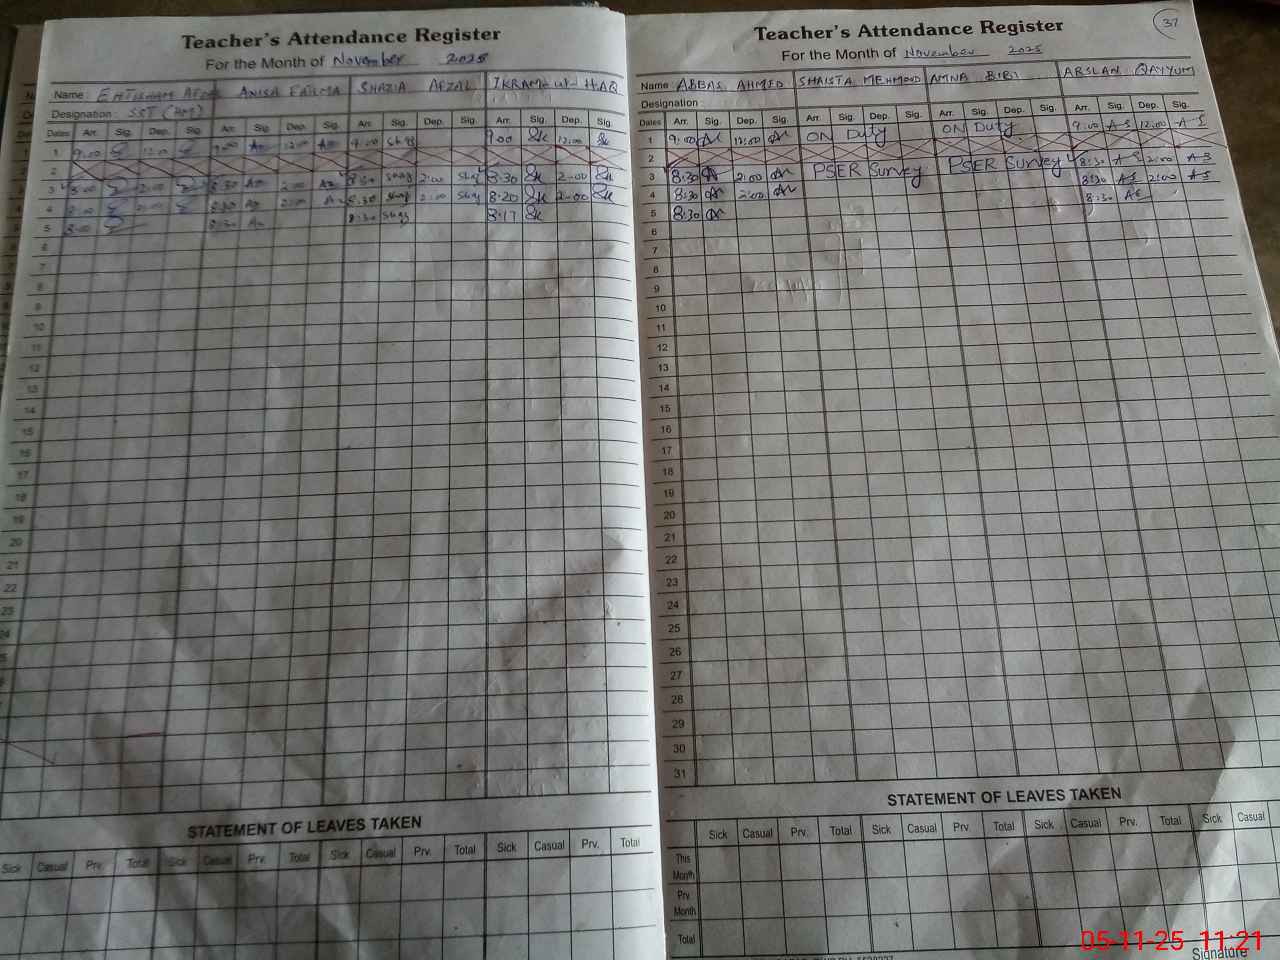 Teacher's Attendance Register
For the Month of November 2025
Name : EHTISHAM AFZAL ANISA FATIMA SHAZIA AFZAL IKRAM ul HAQ
Designation : SST (HM)
Dates Arr. Sig. Dep. Sig. Arr. Sig. Dep. Sig. Arr. Sig. Dep. Sig. Arr. Sig. Dep. Sig.
1 9:00 12:00 9:00 12:00 9:00 9:00 12:00
2
3 8:00 2:00 8:30 2:00 8:30 2:00 8:30 2:00
4 8:00 2:00 8:30 2:00 8:30 2:00 8:20 2:00
5 8:00 8:30 8:30 8:17
6
7
8
9
10
11
12
13
14
15
16
17
18
19
20
21
22
23
24
STATEMENT OF LEAVES TAKEN
Sick Casual Prv. Total Sick Casual Prv. Total Sick Casual Prv. Total Sick Casual Prv. Total
37
Teacher's Attendance Register
For the Month of November 2025
Name ABBAS AHMED SHAISTA MEHMOOD AMNA BIBI ARSLAN QAYYUM
Designation :
Dates Arr. Sig. Dep. Sig. Arr. Sig. Dep. Sig. Arr. Sig. Dep. Sig. Arr. Sig. Dep. Sig.
1 9:00 12:00 ON Duty ON Duty 9:00 A-S 12:00 A-S
2
3 8:30 2:00 PSER Survey PSER Survey 8:30 A-S 2:00 A-S
4 8:30 2:00 8:30 A-S 2:00 A-S
5 8:30 8:30 A-S
6
7
8
9
10
11
12
13
14
15
16
17
18
19
20
21
22
23
24
25
26
27
28
29
30
31
STATEMENT OF LEAVES TAKEN
Sick Casual Prv. Total Sick Casual Prv. Total Sick Casual Prv. Total Sick Casual
This Month
Prv. Month
Total
Signature
05-11-25 11:21